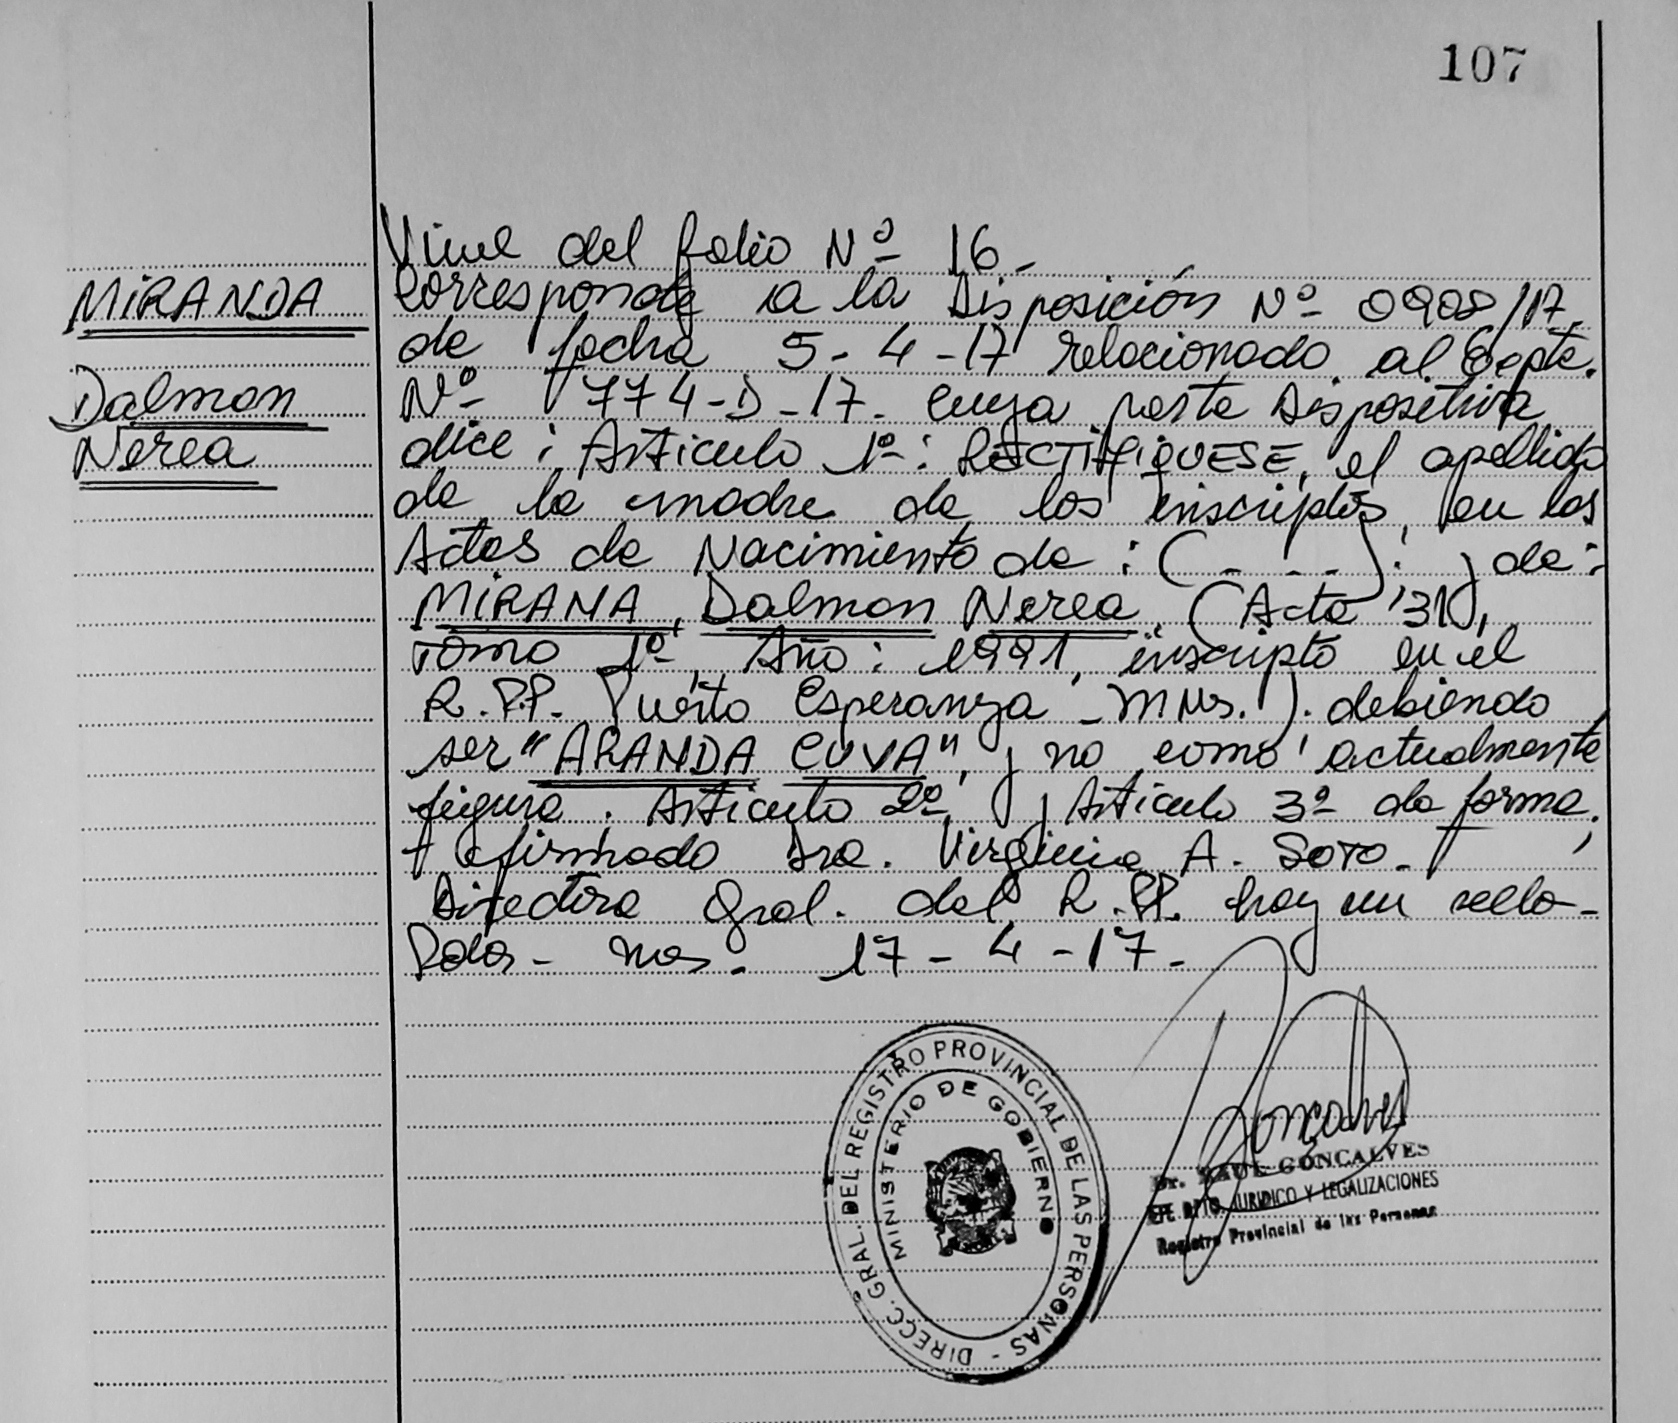 107
MIRANDA
Dalmon
Nerea
Viene del folio Nº 16-
Corresponde a la Disposición Nº 0908/17
de fecha 5-4-17 relacionado al Expte.
Nº 774-D-17. cuya parte Dispositiva
dice: Articulo 1º: RECTIFIQUESE, el apellido
de la madre de los inscriptos, en las
Actas de Nacimiento de: (----). y de:
MIRANA, Dalmon Nerea, (Acta 31,
Tomo 1º, Año: 1991, inscripto en el
R.P.P. Puerto Esperanza - Mnes.). debiendo
ser "ARANDA CUVA", y no como actualmente
figura. Articulo 2º, y Articulo 3º de forma.
firmado Dra. Virginia A. SOTO-
Directora Gral. del R.PP. hay un sello-
Pdas- Mnes. 17-4-17-
DIRECC. GRAL. DEL REGISTRO PROVINCIAL DE LAS PERSONAS -
MINISTERIO DE GOBIERNO
Dr. RAUL GONCALVES
JEFE DPTO. JURIDICO Y LEGALIZACIONES
Registro Provincial de las Personas